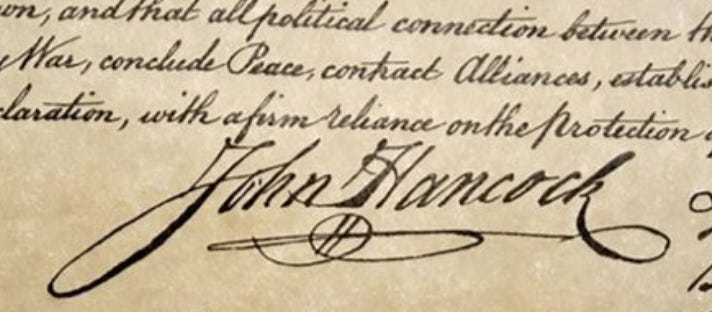 and that all political connection between
War, conclude Peace, contract Alliances,
with a firm reliance on the Protection
John Hancock